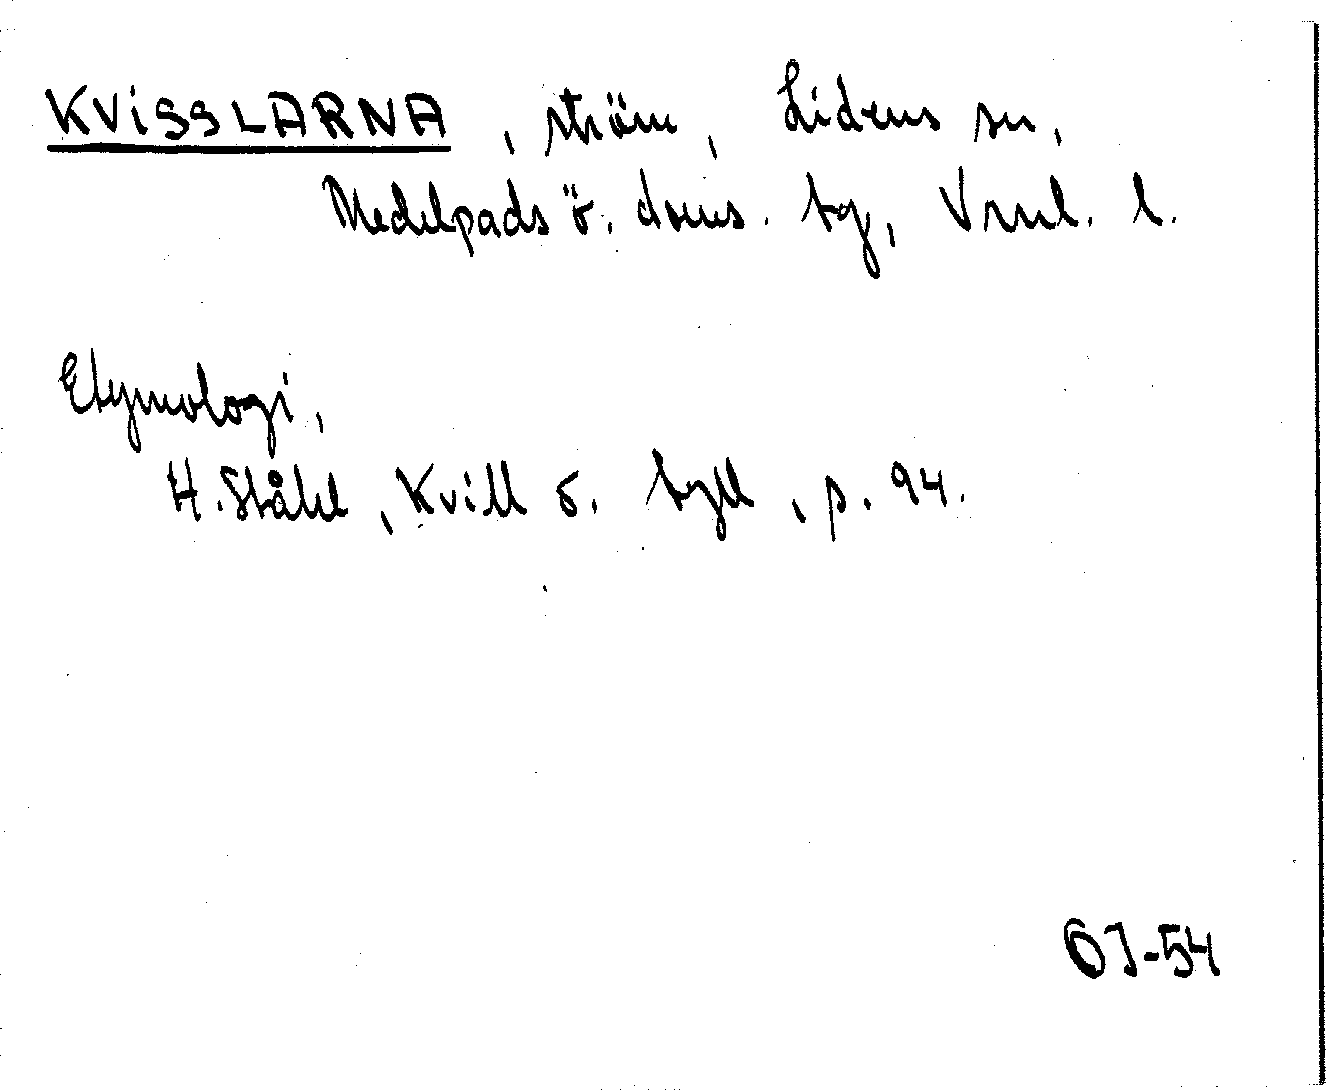 KVISSLARNA, ström, Lidens sn,
Medelpads ö. doms. tg, Vrnl. l.
Etymologi,
H. Ståhl, Kvill o. tyll, p. 94.
ÖJ-54